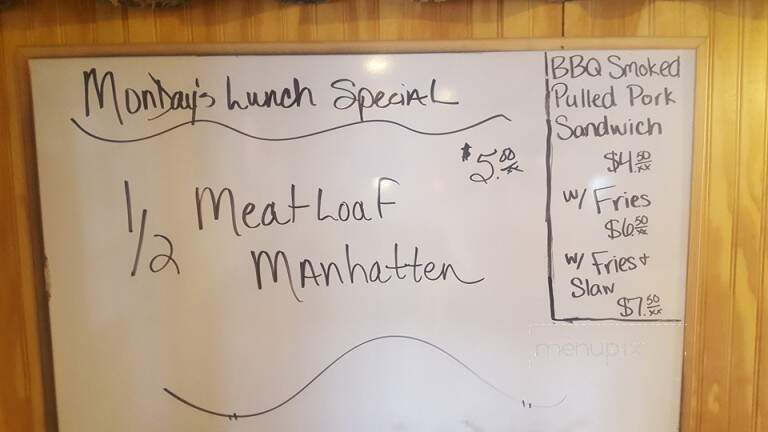 Monday's Lunch Special
$5.00/xx
1/2 Meatloaf
Manhatten
BBQ Smoked
Pulled Pork
Sandwich
$4.50/xx
w/ Fries
$6.50/xx
w/ Fries +
Slaw
$7.50/xx
menupix